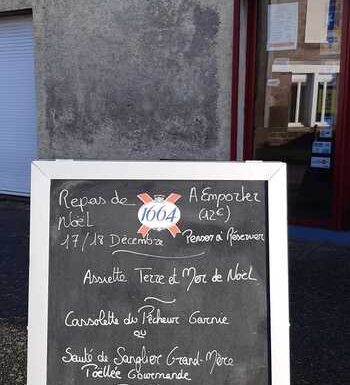 Repas de
Noël
17/18 Décembre
1664
A Emporter
(12€)
Penser à Réserver
Assiette Terre et Mer de Noël
Cassolette du Pêcheur Garnie
ou
Sauté de Sanglier Grand-Mère
Poêllée Gourmande